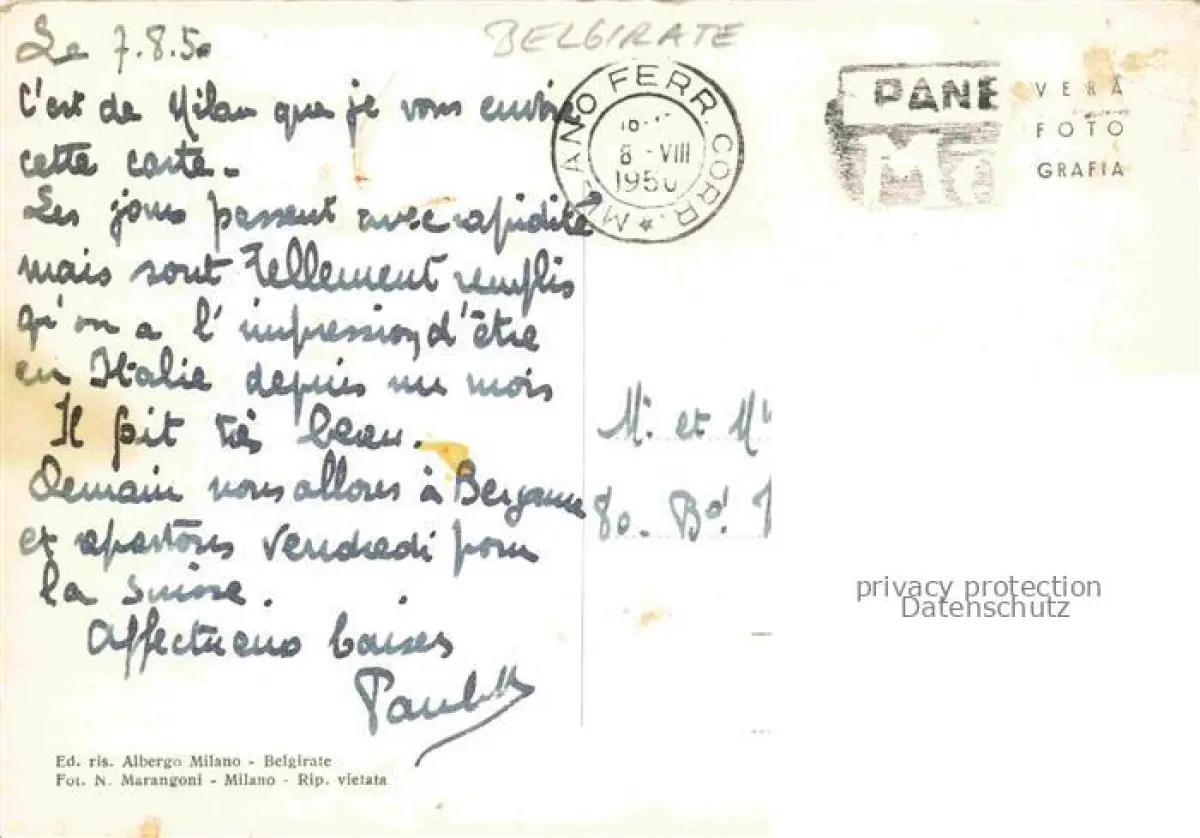 BELGIRATE
Le 7.8.50
C'est de Milan que je vous envoie
cette carte.
Les jours passent avec rapidité
mais sont tellement remplis
qu'on a l'impression d'être
en Italie depuis un mois
Il fait très beau.
Demain nous allons à Bergame
et repartons vendredi pour
la Suisse.
Affectueux baisers
MILANO FERR. CORR.
8 - VIII
1950
PANE
VERA
FOTO
GRAFIA
Mr et M
80. Bd.
privacy protection
Datenschutz
Ed. ris. Albergo Milano - Belgirate
Fot. N. Marangoni - Milano - Rip. vietata